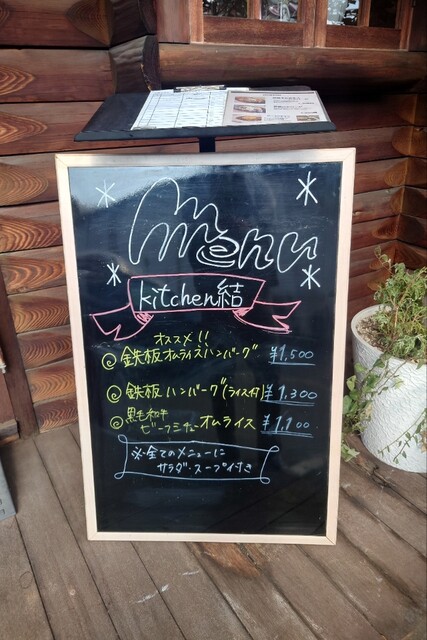 menu
kitchen結
オススメ!!
◎鉄板オムライスハンバーグ ¥1,500
◎鉄板ハンバーグ(ライス付) ¥1,300
◎黒毛和牛
ビーフシチューオムライス ¥1,100
※全てのメニューに
サラダ・スープ付き